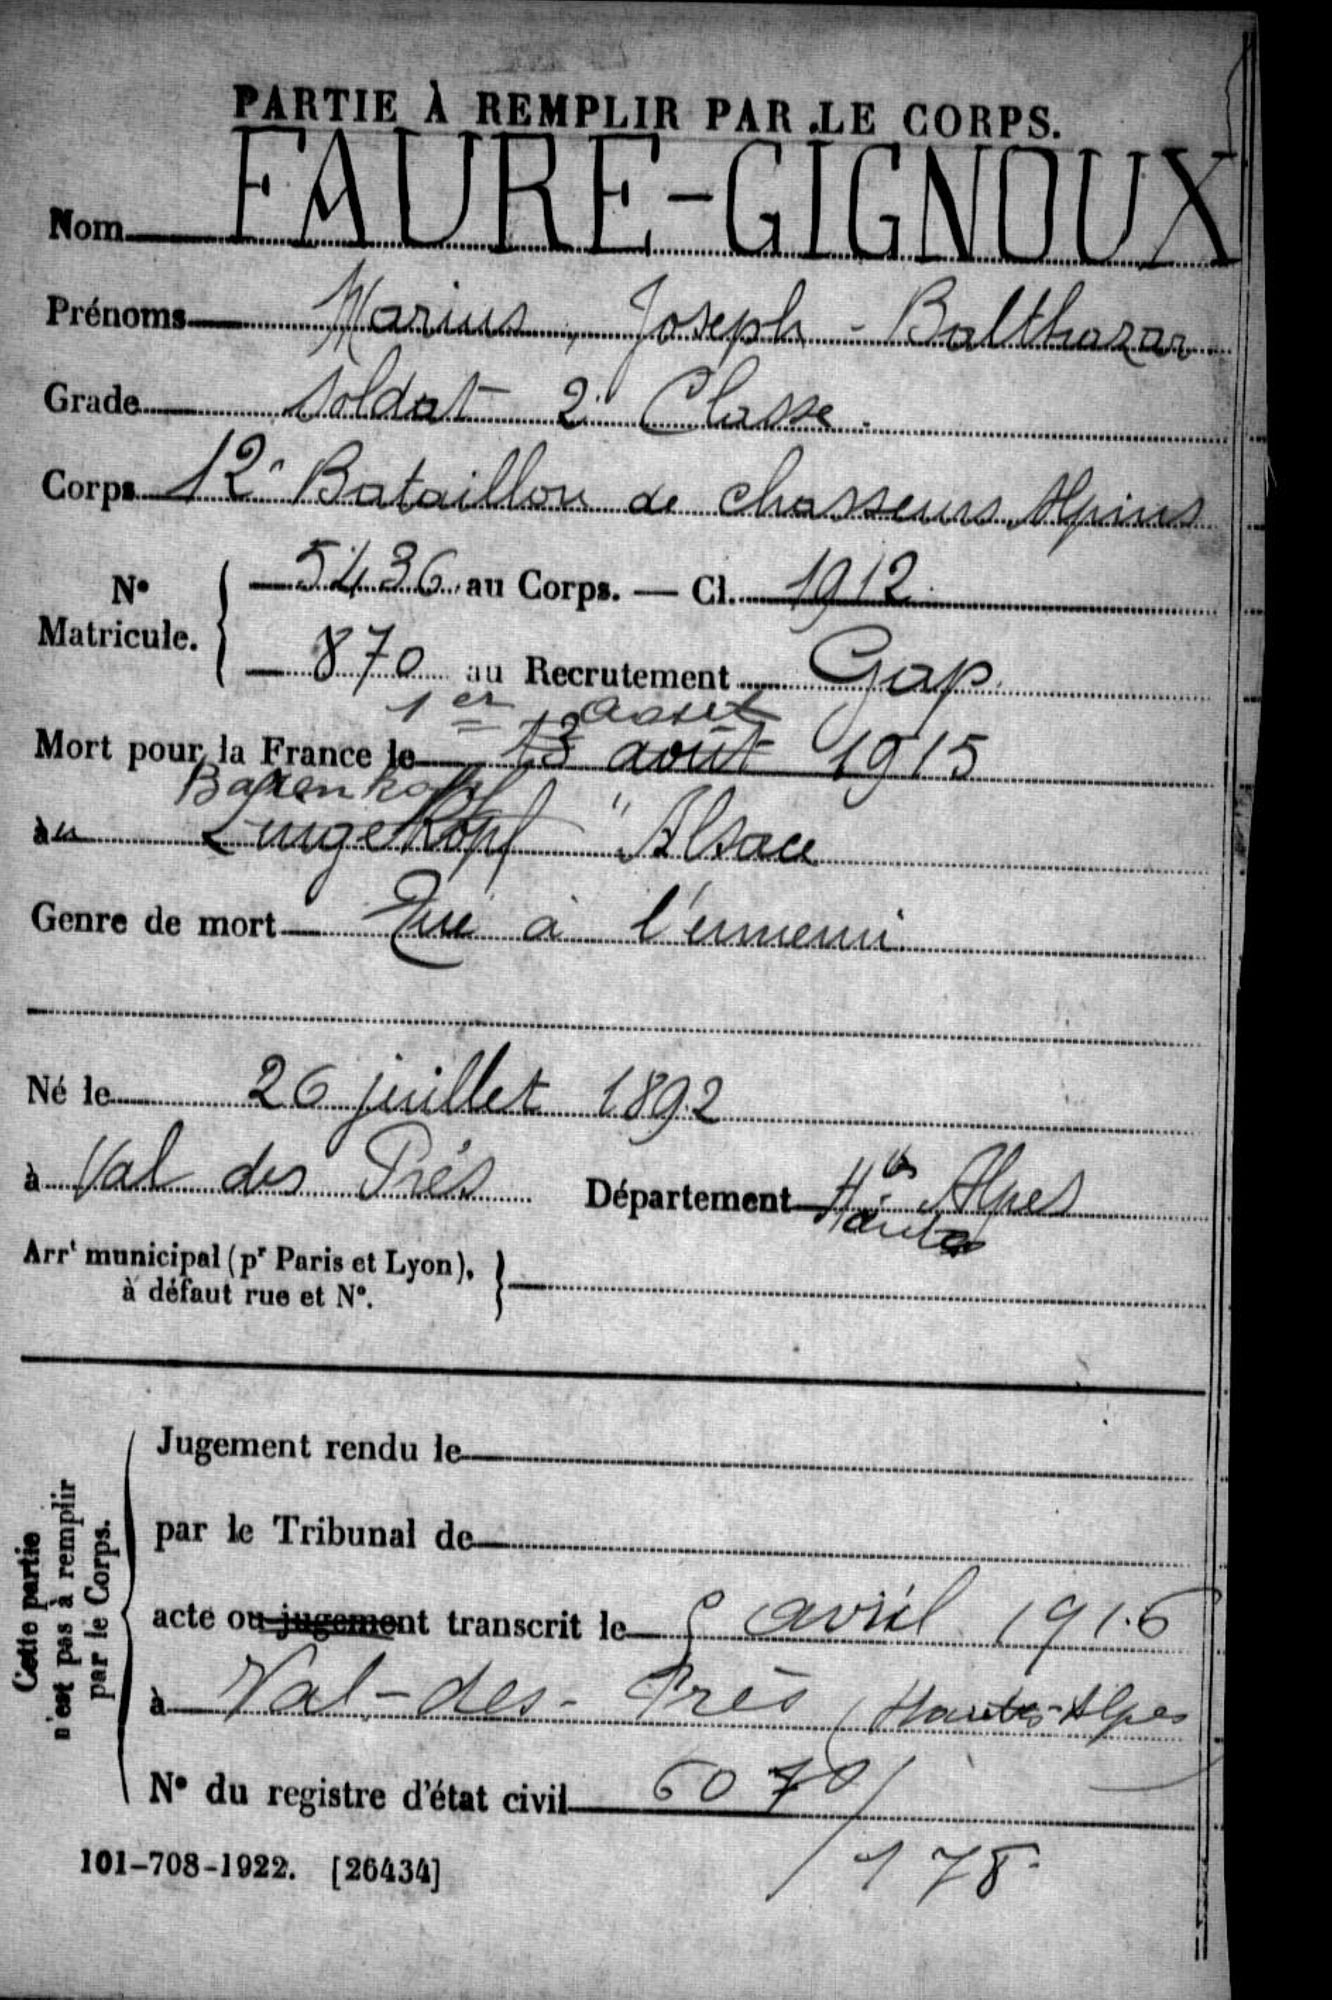 PARTIE À REMPLIR PAR LE CORPS.
Nom FAURE-GIGNOUX
Prénoms Marius, Joseph - Balthazar
Grade Soldat 2e Classe.
Corps 12e Bataillon de chasseurs Alpins
N° Matricule. { 5436 au Corps. — Cl. 1912
870 au Recrutement Gap
1er août
Mort pour la France le 13 août 1915
Barrenkopf
au Lingekopf " Alsace
Genre de mort Tué à l'ennemi
Né le 26 juillet 1892
à Val des Prés Département Htes Alpes
Hautes
Arrt municipal (pr Paris et Lyon), à défaut rue et N°.
Cette partie n'est pas à remplir par le Corps.
Jugement rendu le
par le Tribunal de
acte ou jugement transcrit le 5 avril 1916
à Val-des-Prés (Hautes-Alpes
N° du registre d'état civil 6070/
/178
101-708-1922. [26434]